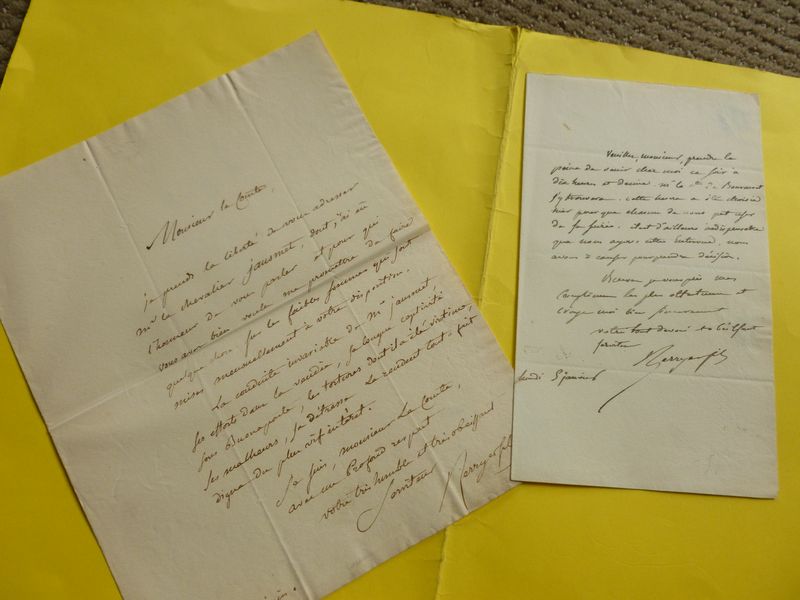 Monsieur le Comte,
je prends la liberté de vous adresser
mr le chevalier jausmet, dont j'ai eu
l'honneur de vous parler et pour qui
vous avez bien voulu me promettre de faire
quelque chose sur les faibles sommes qui sont
mises mensuellement à votre disposition.
La conduite invariable de mr jausmet
ses efforts dans la vendée, sa longue captivité
sous Buonaparte, les tortures dont il a été victime,
ses malheurs, sa détresse le rendent tout-à-fait
digne du plus vif intérêt.
Je suis, monsieur Le Comte,
avec un Profond respect
votre très humble et très obéissant
Serviteur Berryer fils
Veuillez, monsieur, prendre la
peine de venir chez moi ce soir à
dix heures et demie, mr le de
cette heure a été choisie
hier pour que chacun de nous pût
il est d'ailleurs indispensable
que nous ayons cette entrevue, nous
avons à pour prendre décision.
Recevez je vous prie mes
complimens les plus et
croyez moi bien
votre tout dévoué et
serviteur
Berryer fils
lundi 5 janvier